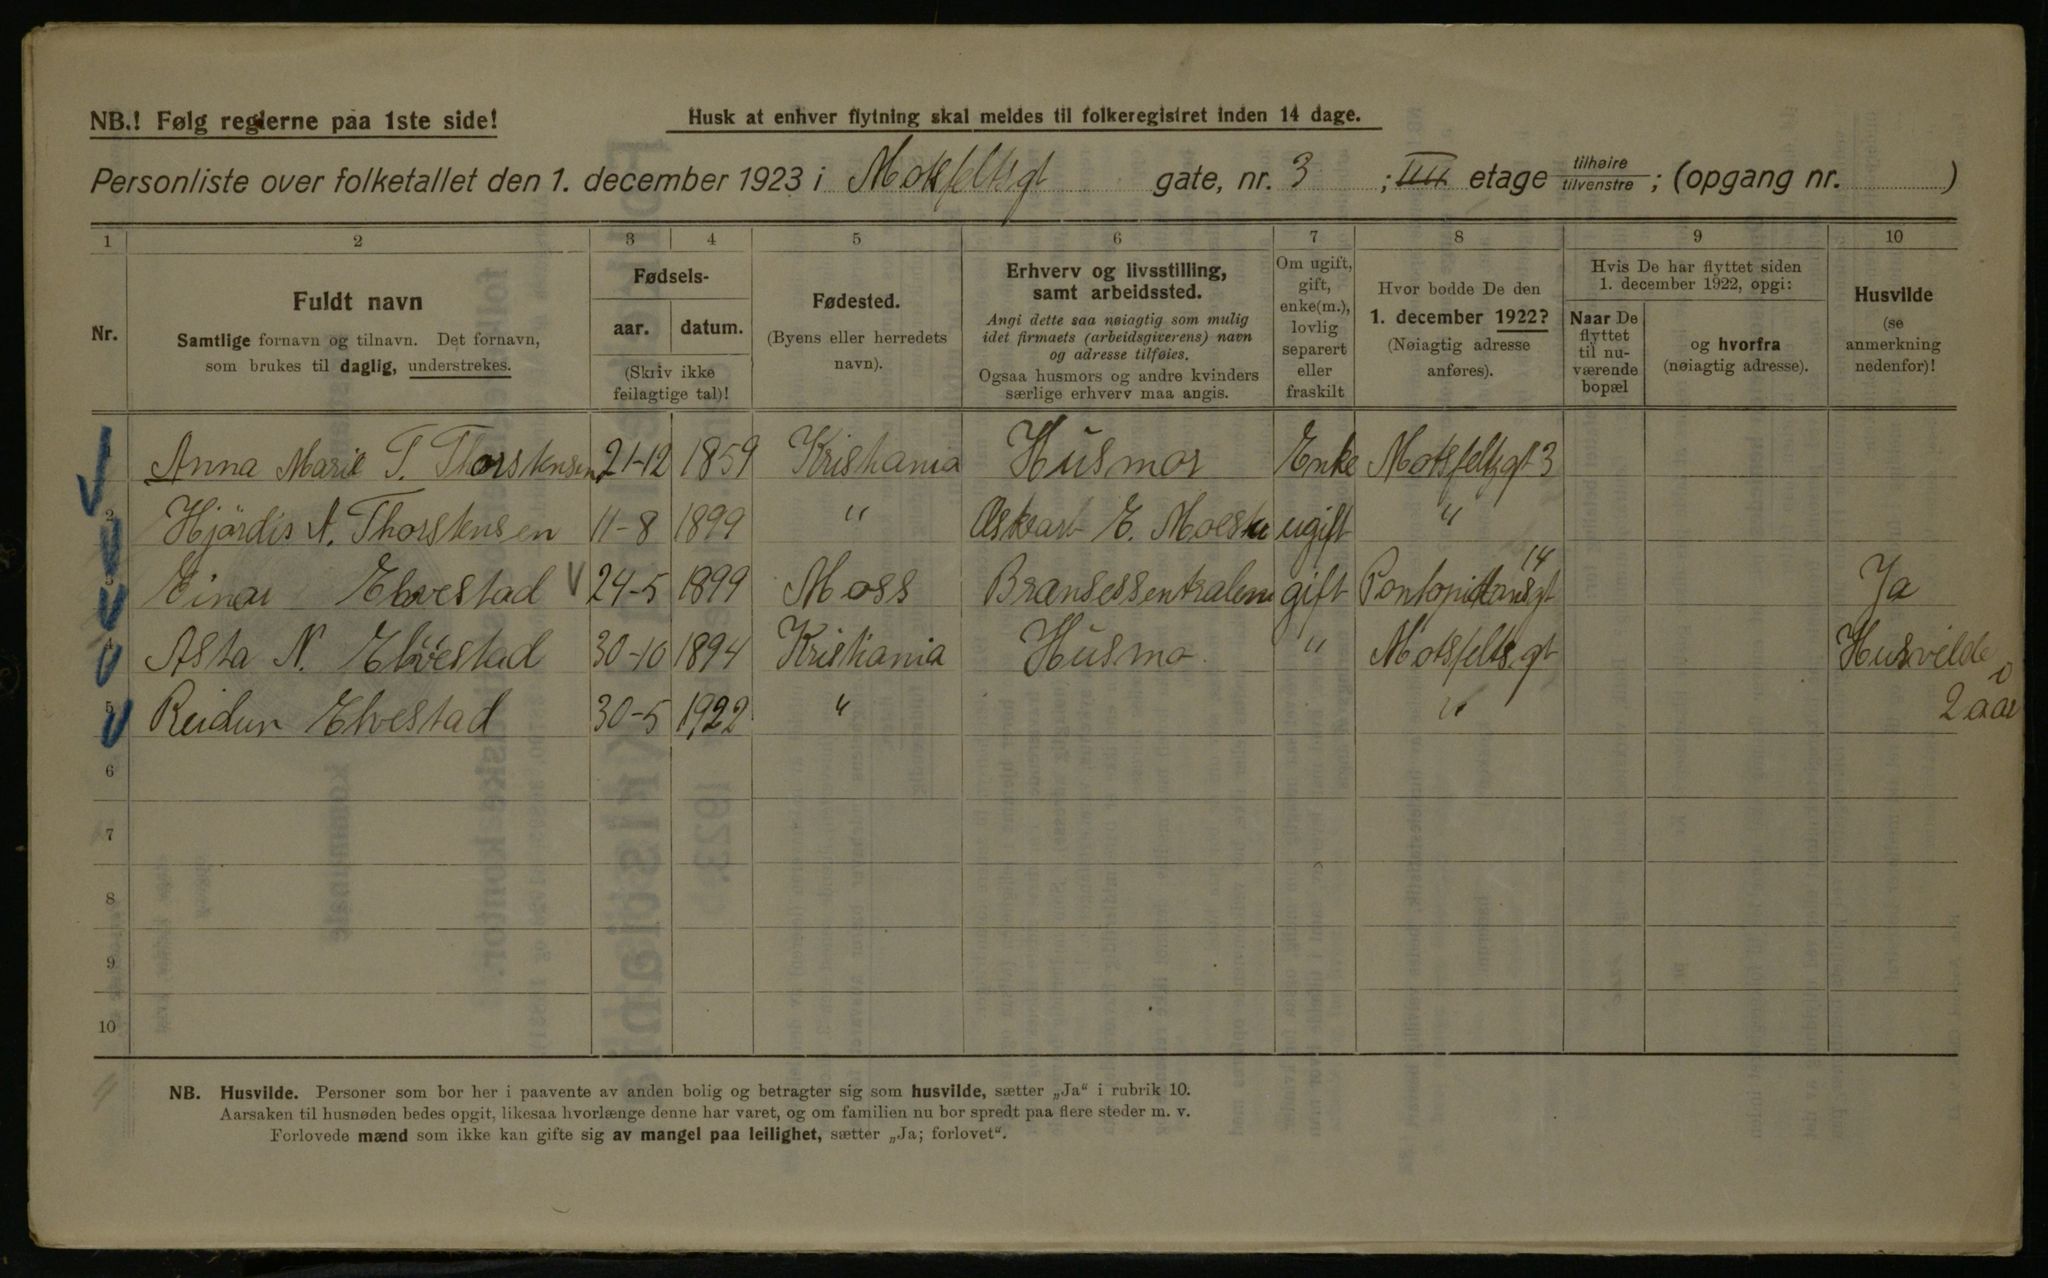 NB.! Følg reglerne paa 1ste side!
Husk at enhver flytning skal meldes til folkeregistret inden 14 dage.
Personliste over folketallet den 1. december 1923 i Motsfeltsgt gate, nr. 3 ; IIII etage tilhøire/tilvenstre ; (opgang nr. )
1 2 3 4 5 6 7 8 9 10
Nr.
Fuldt navn
Samtlige fornavn og tilnavn. Det fornavn,
som brukes til daglig, understrekes.
Fødsels-
aar. datum.
(Skriv ikke
feilagtige tal)!
Fødested.
(Byens eller herredets
navn).
Erhverv og livsstilling,
samt arbeidssted.
Angi dette saa nøiagtig som mulig
idet firmaets (arbeidsgiverens) navn
og adresse tilføies.
Ogsaa husmors og andre kvinders
særlige erhverv maa angis.
Om ugift,
gift,
enke(m.),
lovlig
separert
eller
fraskilt
Hvor bodde De den
1. december 1922?
(Nøiagtig adresse
anføres).
Hvis De har flyttet siden
1. december 1922, opgi:
Naar De
flyttet
til nu-
værende
bopæl
og hvorfra
(nøiagtig adresse).
Husvilde
(se
anmerkning
nedenfor)!
1 Anna Marie T. Thorstensen 21-12 1859 Kristiania Husmor Enke Motsfeltsgt 3
2 Hjördis A. Thorstensen 11-8 1899 " E. Moestu ugift "
3 Einar Elvestad V 24-5 1899 Moss Brænsessentralen gift 14 Ja
4 Asta N. Elvestad 30-10 1894 Kristiania Husmo. " Motsfeltsgt Husvilde i
5 Reidun Elvestad 30-5 1922 " " 2 aar
6
7
8
9
10
NB. Husvilde. Personer som bor her i paavente av anden bolig og betragter sig som husvilde, sætter „Ja“ i rubrik 10.
Aarsaken til husnøden bedes opgit, likesaa hvorlænge denne har varet, og om familien nu bor spredt paa flere steder m. v.
Forlovede mænd som ikke kan gifte sig av mangel paa leilighet, sætter „Ja; forlovet“.